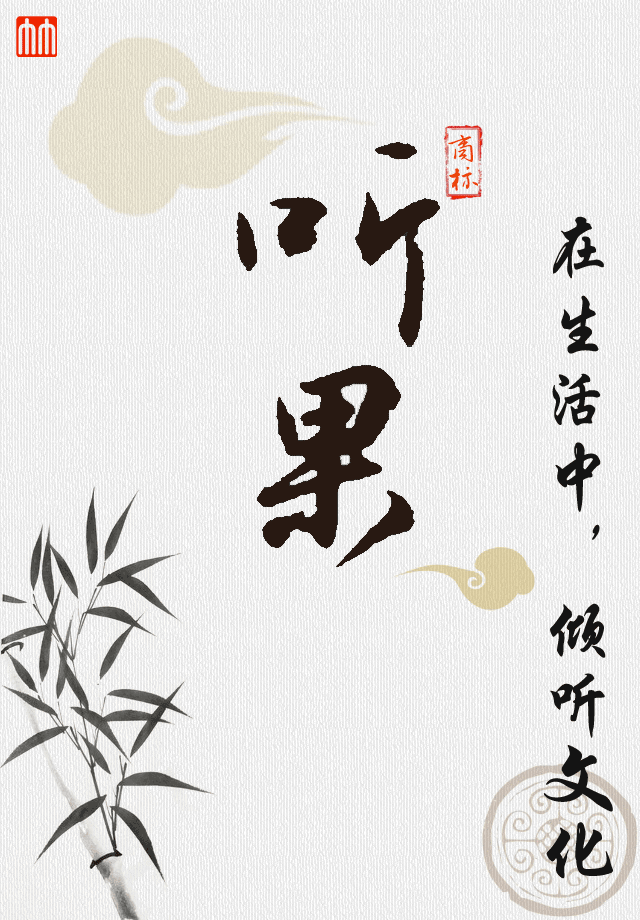 听果
商标
在生活中，倾听文化